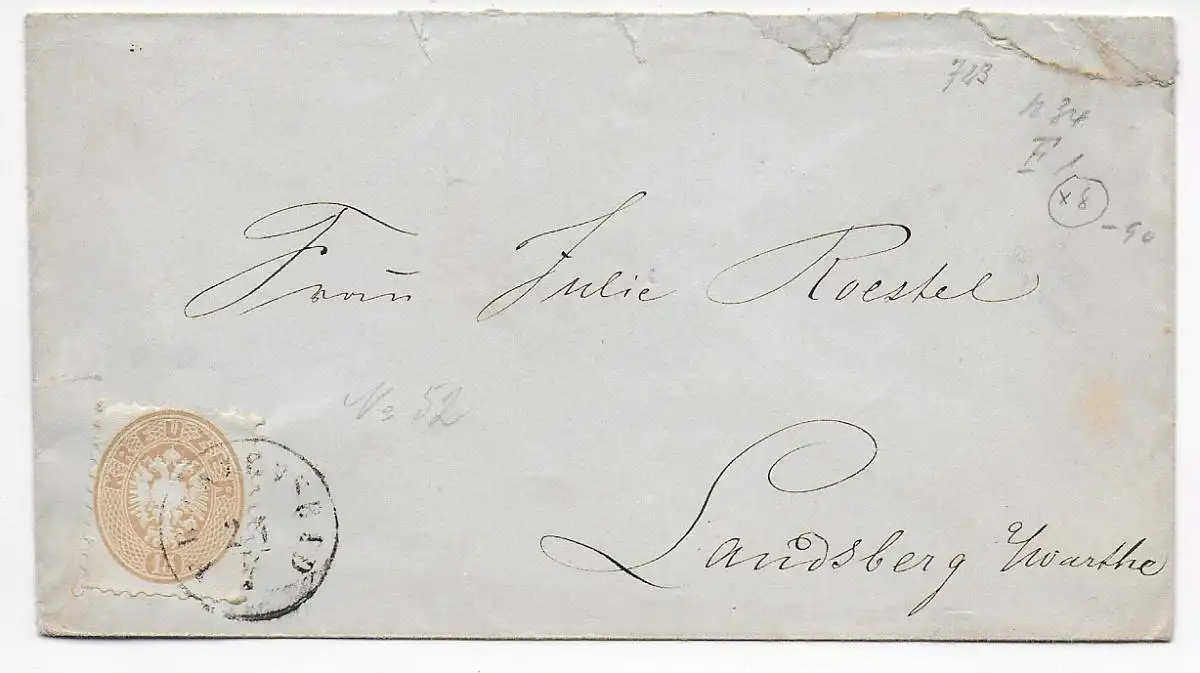 743
F 1
x 8
- 90
Frau Julie Roestel
No 52
KREUZER
15
Landsberg Warthe